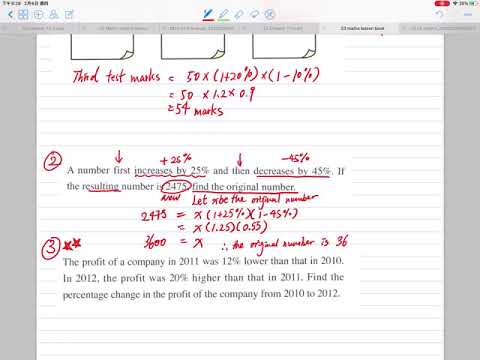 下午9:28 2月6日 週四
S3 maths lesson book
Third test marks = 50 × (1+20%) × (1-10%)
= 50 × 1.2 × 0.9
= 54 marks
② +25% -45%
A number first increases by 25% and then decreases by 45%. If
the resulting number is 2475, find the original number.
new Let x be the original number
2475 = x (1+25%)(1-45%)
= x (1.25)(0.55)
3600 = x ∴ the original number is 36
③ **
The profit of a company in 2011 was 12% lower than that in 2010.
In 2012, the profit was 20% higher than that in 2011. Find the
percentage change in the profit of the company from 2010 to 2012.